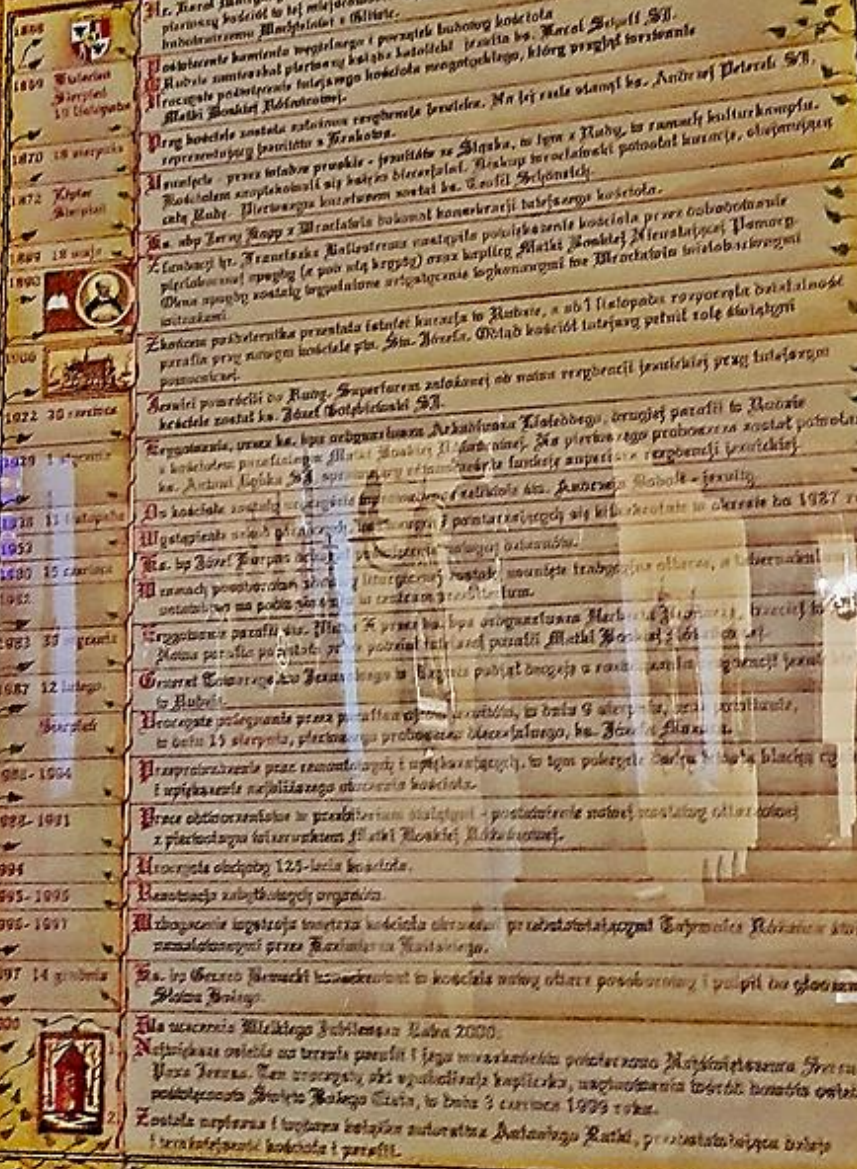 pierwszy kościół w tej miejscowości
budowniczemu z Gliwic.
1869 Kwiecień Poświęcenie kamienia węgielnego i początek budowy kościoła
Sierpień W Rudzie zamieszkał pierwszy ksiądz katolicki jezuita ks. Karol SJ.
19 listopada Uroczyste poświęcenie tutejszego kościoła neogotyckiego, który przyjął wezwanie
Matki Boskiej Różańcowej.
1870 18 sierpnia Przy kościele została założona rezydencja jezuicka. Na jej czele stanął ks. Andrzej Peterek SJ,
reprezentujący jezuitów z Krakowa.
1872 Lipiec Usunięcie - przez władze pruskie - jezuitów ze Śląska, w tym z Rudy, w ramach kulturkampfu.
Sierpień Kościołem zaopiekowali się księża diecezjalni. Biskup wrocławski powołał kurację, obejmującą
całą Rudę. Pierwszym kuratusem został ks. Teofil
18 maja Ks. abp Jerzy Kopp z Wrocławia dokonał konsekracji tutejszego kościoła.
1890 Z fundacji hr. Franciszka Ballestrema nastąpiło powiększenie kościoła przez dobudowanie
pięciobocznej apsydy (a pod nią krypty) oraz kaplicy Matki Boskiej Nieustającej Pomocy.
Okna apsydy zostały wypełnione artystycznie wykonanymi we Wrocławiu wielobarwnymi
witrażami.
Z końcem października przestała istnieć kuracja w Rudzie, a od 1 listopada rozpoczęła działalność
parafia przy nowym kościele pw. Św. Józefa. Odtąd kościół tutejszy pełnił rolę świątyni
pomocniczej.
1922 30 czerwca Jezuici powrócili do Rudy. Superiorem założonej od nowa rezydencji jezuickiej przy tutejszym
kościele został ks. Józef SJ.
1929 1 stycznia Erygowanie, przez ks. bpa ordynariusza Arkadiusza Lisieckiego, drugiej parafii w Rudzie
z kościołem parafialnym Matki Boskiej Różańcowej. Na pierwszego proboszcza został powołany
ks. Antoni SJ, sprawujący równocześnie funkcję superiora rezydencji jezuickiej.
1938 11 listopada Do kościoła zostały uroczyście wprowadzone relikwie św. Andrzeja Boboli - jezuity.
1953 Wystąpienie szkód górniczych, i powtarzających się kilkakrotnie w okresie do 1987 r.
1980 15 czerwca Ks. bp Józef Kurpas dokonał poświęcenia nowych dzwonów.
W ramach posoborowej liturgicznej został usunięty tradycyjny ołtarz, a tabernakulum
ustawiono na podwyższeniu w centrum prezbiterium.
1983 Erygowanie parafii św. Piusa X przez ks. bpa ordynariusza Herberta trzeciej
Nowa parafia powstała przez podział tutejszej parafii Matki Boskiej Różańcowej.
1987 12 lutego Generał Towarzystwa Jezusowego w Rzymie podjął decyzję o rezydencji
w Rudzie.
Sierpień Uroczyste pożegnanie przez parafian ojców jezuitów, w dniu 9 sierpnia, oraz powitanie,
w dniu 15 sierpnia, pierwszego proboszcza diecezjalnego, ks. Józefa
- 1994 Przeprowadzenie prac remontowych i upiększających, w tym pokrycie dachu kościoła blachą
i upiększenie najbliższego otoczenia kościoła.
- 1991 Prace odtworzeniowe w prezbiterium świątyni - postawienie nowej nastawy ołtarzowej
z pierwotnym wizerunkiem Matki Boskiej Różańcowej.
994 Uroczyste obchody 125-lecia kościoła.
995 - 1996 Renowacja zabytkowych organów.
996 - 1997 Wzbogacenie wystroju wnętrza kościoła obrazami przedstawiającymi Tajemnice Różańca
namalowanymi przez Kazimierza
997 14 grudnia Ks. bp Gerard Bernacki konsekrował w kościele nowy ołtarz posoborowy i pulpit do głoszenia
Słowa Bożego.
Dla uczczenia Wielkiego Jubileuszu Roku 2000:
1. Największe osiedle na terenie parafii i jego mieszkańców powierzono Najświętszemu Sercu
Pana Jezusa. Ten uroczysty akt symbolizuje kapliczka, usytuowana wśród domów
poświęcona w Święto Bożego Ciała, w dniu 3 czerwca 1999 roku.
2. Została napisana i wydana książka autorstwa Antoniego Ratki, przedstawiająca dzieje
i teraźniejszość kościoła i parafii.